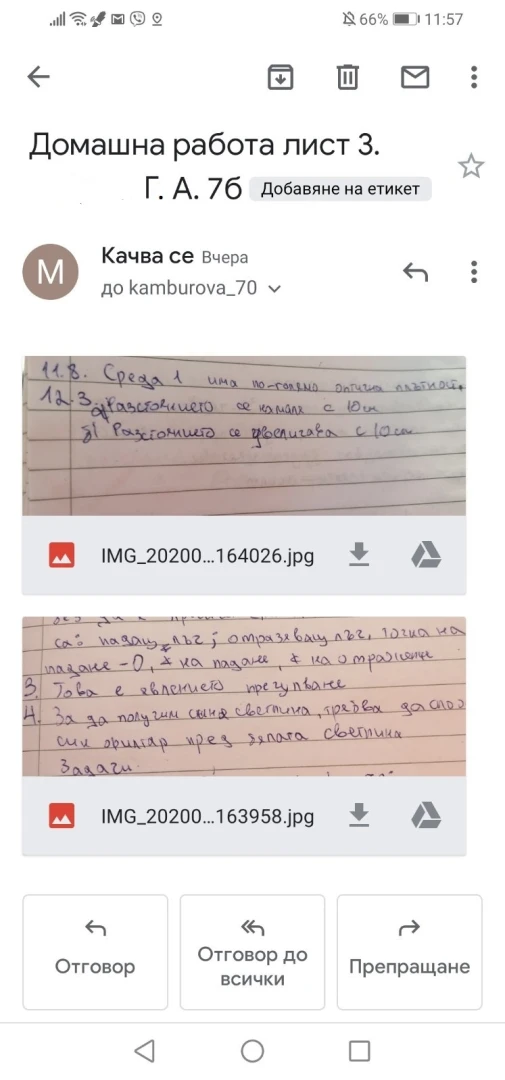 66% 11:57
Домашна работа лист 3.
Г. А. 7б Добавяне на етикет
М
Качва се Вчера
до kamburova_70
11.8. Среда 1 има по-голяма оптична плътност.
12.3. а) Разстоянието се намаля с 10см
б) Разстоянието се увеличава с 10см
IMG_20200...164026.jpg
са: падащ лъч; отразяващ лъч, точка на
падане - О, ∢ на падане, ∢ на отражение
3. Това е явлението пречупване
4. За да получим синя светлина, трябва да сло
сим филтър пред бялата светлина
Задачи.
IMG_20200...163958.jpg
Отговор
Отговор до всички
Препращане